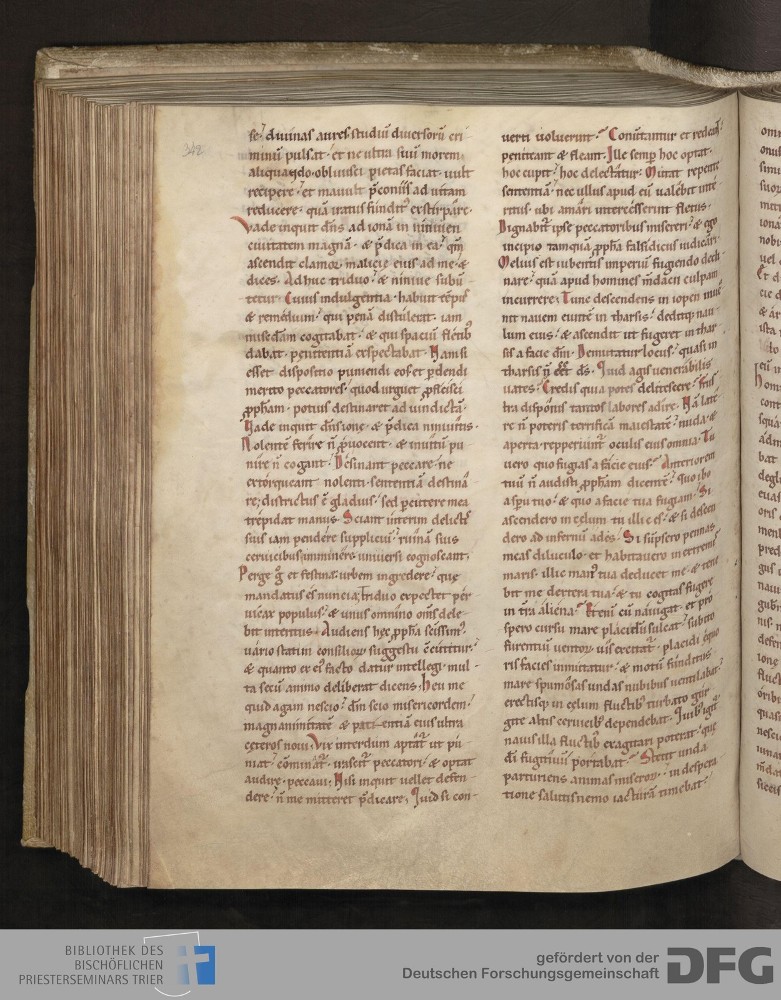 342
se; diuinas aures studiū diuersorū cri
minū pulsat; et ne ultra suū morem
aliquando obliuisci pietas faciat. uult
recipere; et mauult p̄coniis ad uitam
reducere. quā iratus funditꝰ exstirpare.
Vade inquit dn̄s ad ionā in niniuen
ciuitatem magnā. & p̄dica in ea; qm̄
ascendit clamor malicie eius ad me. &
dices. Adhuc triduo; & niniue subū
tetur. Cuius indulgentia habuit tēpꝰ
& remedium; qui penā distulerit. iam
misedam cogitabat; & qui spaciū fletibꝰ
dabat. penitentiā exspectabat. Nam si
esset dispositio puniendi eos et pdendi
merito peccatores; quod urguet ꝓficisci
ꝓpham. potius destinaret ad uindictā.
Vade inquit dn̄s iona; & p̄dica niniuitis.
Nolentē ferire n̄ ꝓuocent. & inuitū pu
nire n̄ cogant. Desinant peccare. ne
extorqueant nolenti sententiā destina
re; districtus ē gladius; sed ꝑcutere mea
trepidat manus. Sciant interim delictis
suis iam pendere supplicium; ruinā suis
ceruicibus imminere uniuersi cognoscant.
Perge g̊ et festina. urbem ingredere; que
mandatus es nuncia; triduo expectet per
uicax populus; & unus omnino om̄s dele
bit interitus. Audiens hęc ꝓpha scissimꝰ.
uario statim consiliorū suggestu c̄cutitur;
& quanto ex eiꝰ facto datur intellegi. mul
ta secū animo deliberat dicens. Heu me
quid agam nescio; dn̄m scio misericordem;
magnanimitatē & patientiā eius ultra
cęteros noui. Vix interdum aptat ut pu
niat; cōminat̄. irascit̄ peccatori; & optat
audire peccaui. Nisi inquit uellet defen
dere; n̄ me mitteret p̄dicare; Quid si con
uerti uoluerint; Conūtantur et redeant;
peniteant & fleant. Ille semp hoc optat.
hoc cupit; hoc delectatur. Mutat repente
sententiā; nec ullus apud eū ualebit inte
ritus. ubi amari intercesserint fletus.
Dignabit̄ ipse peccatoribus misereri; & ego
incipio tamquā ꝓpha falsidicus iudicari.
Melius est iubentis imperiū fugiendo decli
nare; quā apud homines mdacii culpam
incurrere; Tunc descendens in iopen inue
nit nauem euntē in tharsis; deditq; nau
lum eius; & ascendit ut fugeret in thar
sis a facie dn̄i. Demutatur locus; quasi in
tharsis n̄ esset ds̄. Quid agis uenerabilis
uates; Credis quia potes delitescere; frus
tra disponis tantos labores adire. Nā late
re n̄ poteris terrificā maiestatē; nuda &
aperta repperiunt̄ oculis eius omnia. Tu
uero quo fugias a facie eius; Anteriorem
tuū n̄ audisti ꝓpham dicentē; Quo ibo
a spū tuo; & quo a facie tua fugiam; Si
ascendero in cęlum tu illic es; & si descen
dero ad infernū ades; Si sūpsero pennas
meas diluculo. et habitauero in extremis
maris. illic manꝰ tua deducet me. & tene
bit me dextera tua; & tu cogitas fugere
in trā aliena; Itenī cū nauigat. et pro
spero cursu mare placidū sulcat; subito
furentiū uentorū uis excitat̄; placidi equo
ris facies inmutatur; & motu funditus
mare spumosas undas nubibus uentilabat;
erectisq; in cęlum fluctibꝰ turbato gur
gite altis ceruicibꝰ dependebat. Quibꝰ igit̄
nauis illa fluctibꝰ exagitari poterat; que
di fugitiuū portabat; Stetit unda
parturiens animas miserorū. in despera
tione salutis nemo iacturā timebat;
BIBLIOTHEK DES
BISCHÖFLICHEN
PRIESTERSEMINARS TRIER
gefördert von der
Deutschen Forschungsgemeinschaft
DFG